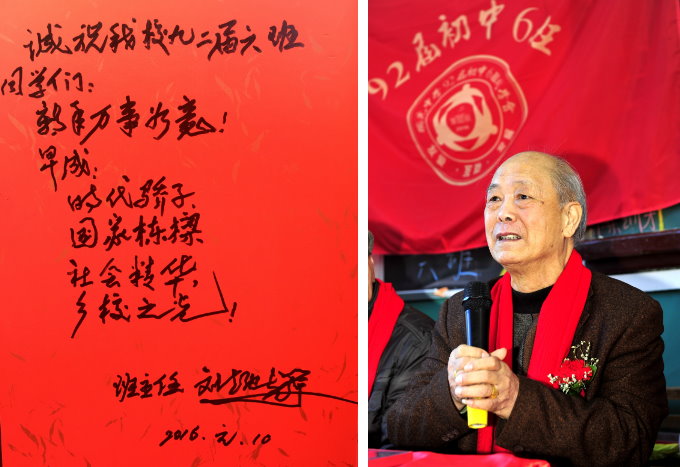 诚祝我校九二届六班
同学们：
新年万事如意！
早成：
时代骄子、
国家栋樑
社会精华，
乡校之光！
班主任 刘
2016.元.10
92届初中6班
六班